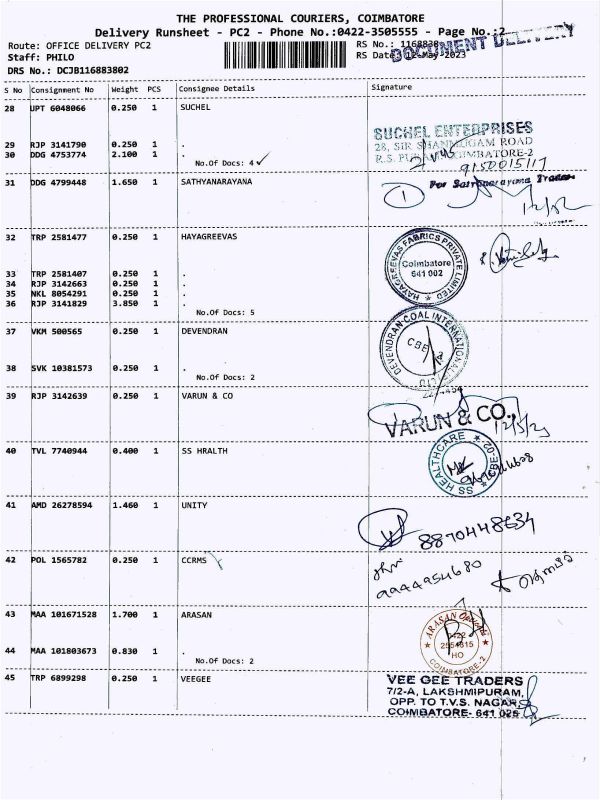 THE PROFESSIONAL COURIERS, COIMBATORE
Delivery Runsheet - PC2 - Phone No.:0422-3505555 - Page No.:2
DOCUMENT DELIVERY
Route: OFFICE DELIVERY PC2
RS No.: 1168838
Staff: PHILO
RS Date: 12-May-2023
DRS No.: DCJB116883802
S No Consignment No Weight PCS Consignee Details Signature
28 UPT 6048066 0.250 1 SUCHEL
SUCHEL ENTERPRISES
28, SIR SHANMUGAM ROAD
R.S. COIMBATORE-2
9150015117
29 RJP 3141790 0.250 1 .
30 DDG 4753774 2.100 1 .
No.Of Docs: 4 ✓
31 DDG 4799448 1.650 1 SATHYANARAYANA
1
For Satyanarayana Traders
32 TRP 2581477 0.250 1 HAYAGREEVAS
HAYAGREEVAS FABRICS PRIVATE LIMITED
Coimbatore
641 002
33 TRP 2581407 0.250 1 .
34 RJP 3142663 0.250 1 .
35 NKL 8054291 0.250 1 .
36 RJP 3141829 3.850 1 .
No.Of Docs: 5
37 VKM 500565 0.250 1 DEVENDRAN
DEVENDRAN COAL INTERNATIONAL
CBE
38 SVK 10381573 0.250 1 .
No.Of Docs: 2
39 RJP 3142639 0.250 1 VARUN & CO
VARUN & CO.,
12/5/23
40 TVL 7740944 0.400 1 SS HRALTH
SS HEALTHCARE
CBE-02
41 AMD 26278594 1.460 1 UNITY
8870448634
42 POL 1565782 0.250 1 CCRMS
9944954680
43 MAA 101671528 1.700 1 ARASAN
ARASAN
0422
2554815
HO
COIMBATORE-2
44 MAA 101803673 0.830 1 .
No.Of Docs: 2
45 TRP 6899298 0.250 1 VEEGEE
VEE GEE TRADERS
7/2-A, LAKSHMIPURAM,
OPP. TO T.V.S. NAGAR,
COIMBATORE- 641 025